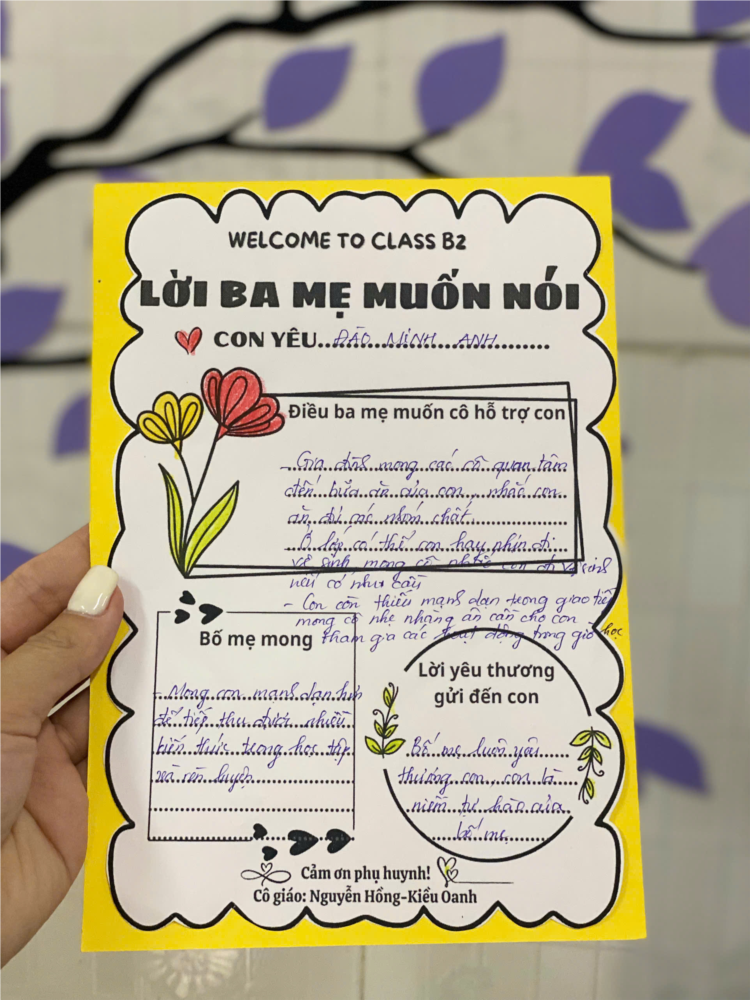 WELCOME TO CLASS B2
LỜI BA MẸ MUỐN NÓI
CON YÊU...ĐÀO MINH ANH...
Điều ba mẹ muốn cô hỗ trợ con
- Gia đình mong các cô quan tâm
đến bữa ăn của con, nhắc con
ăn đủ các nhóm chất.
- Ở lớp có thể con hay nhịn đi
vệ sinh mong cô nhắc con đi vệ sinh
nếu có nhu cầu
- Con còn thiếu mạnh dạn trong giao tiếp
mong cô nhẹ nhàng ân cần cho con
tham gia các hoạt động trong giờ học
Bố mẹ mong
- Mong con mạnh dạn hơn
để tiếp thu được nhiều
kiến thức trong học tập
và rèn luyện
Lời yêu thương
gửi đến con
Bố mẹ luôn yêu
thương con, con là
niềm tự hào của
bố mẹ
Cảm ơn phụ huynh!
Cô giáo: Nguyễn Hồng-Kiều Oanh